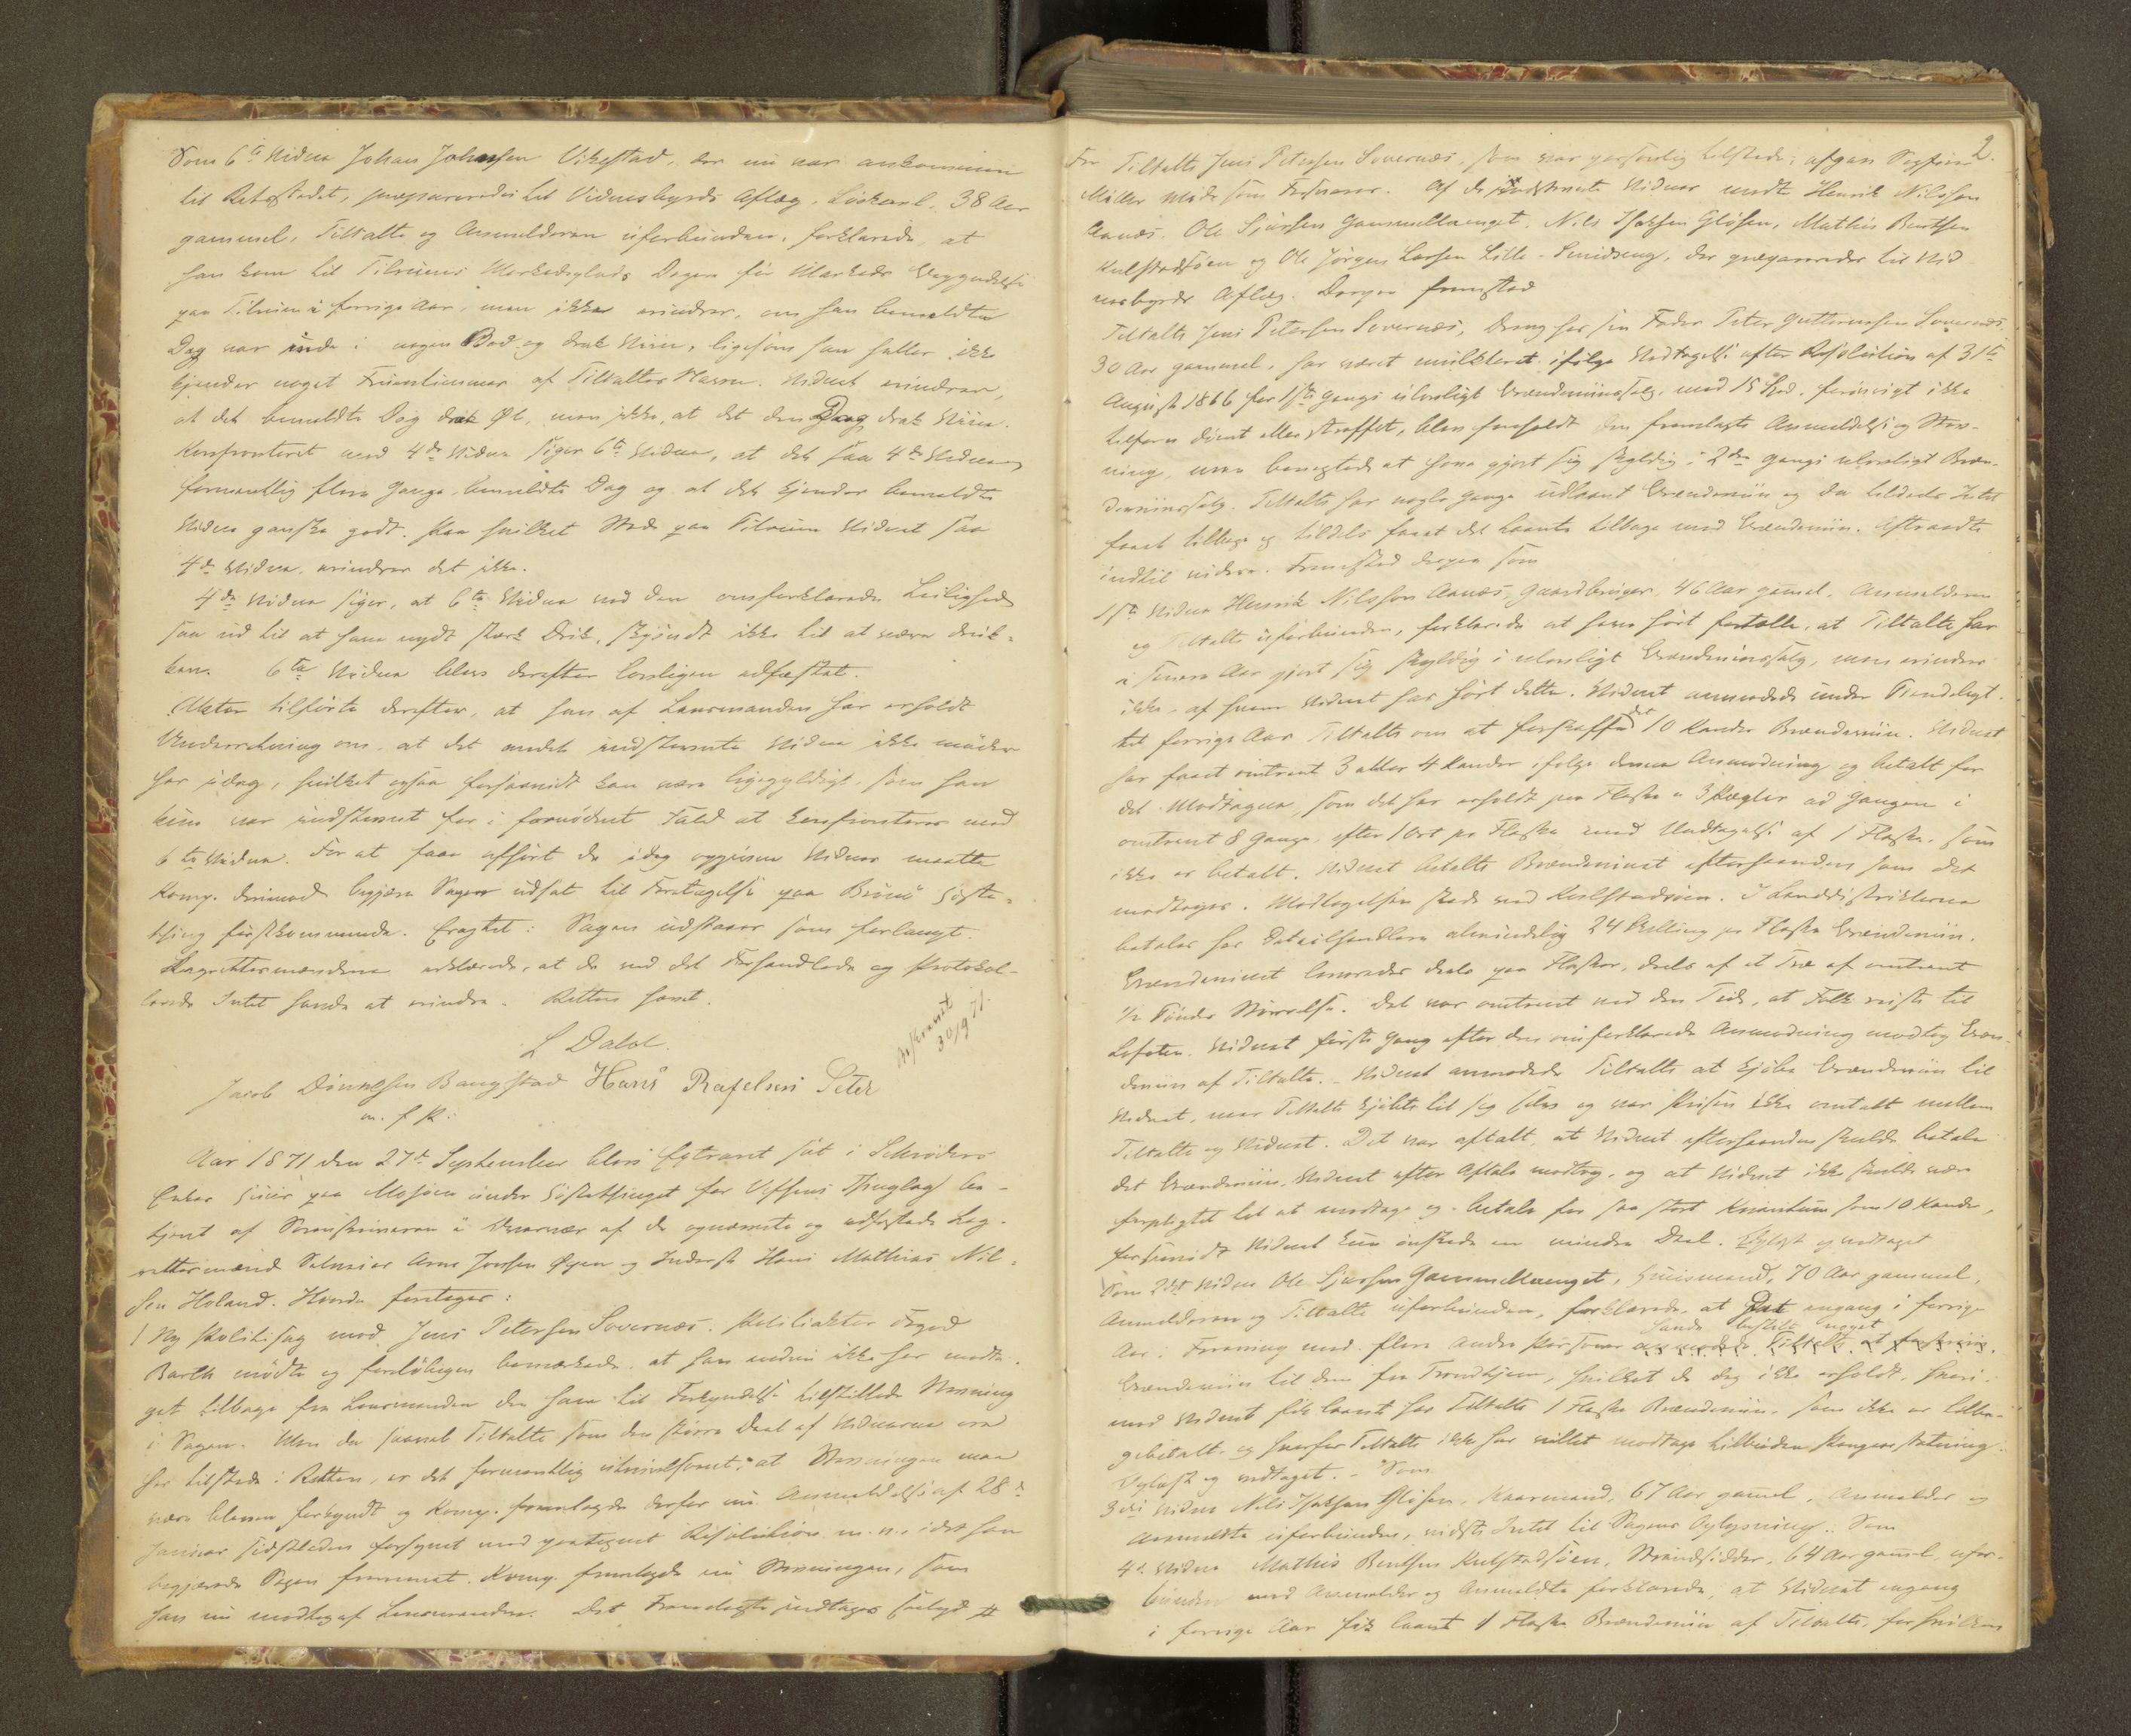 Som 6te Vidne Johan Johnsen Vikestad, der nu var ankommen
til Retsstedet, præpareredes til Vidnesbyrds Aflæg, Løskarl, 38 Aar
gammel, Tiltalte og Anmelderen uforbunden, forklarede, at
han kom til Tilrems Markedsplads Dagen før Markedets Begyndelse
paa Tilrem i forrige Aar, men ikke erindrer, om han bemeldte
Dag var inde i nogen Bod og drak Viin, ligesom han heller ikke
kjender noget Fruentimmer af Tiltaltes Navn. Vidnet erindrer,
at det bemeldte Dag drak Øl, men ikke, at det den Dag drak Viin.
Konfronteret med 4de Vidne siger 6te Vidne, at det saa 4de Vidne
formentlig flere Gange bemeldte Dag og at det kjender bemeldte
Vidne ganske godt. Paa hvilket Sted paa Tilrem Vidnet saa
4de Vidne, erindrer det ikke.
4de Vidne siger, at 6te Vidne ved den omforklarede Leilighed
saa ud til at have nydt stærk Drik, skjøndt ikke til at være druk-
ken. 6te Vidne blev derefter lovligen edfæstet.
Aktor tilførte derefter, at han af Lensmanden har erholdt
Underretning om, at det andet indstevnte Vidne ikke møder
her idag, hvilket ogsaa forsaavidt kan være ligegyldigt, som han
kun var indstevnt for i fornødent Fald at konfronteres med
6te Vidne. For at faa afhørt de idag opgivne Vidner maatte
Komp. derimod begjære Sagen udsat til Foretagelse paa Brønø Høste-
thing førstkommende. Eragtet: Sagen udstaaer som forlangt.
Lagrettesmændene erklærede, at de ved det Forhandlede og Protokol-
lerede Intet havde at erindre. Retten hævet.
L Dahl.
Jacob Dinnesen Bangstad Hans Rafelsen Sæter
m. f. P.
Beskrevet
30/9 71.
Aar 1871 den 27de September blev Extraret sat i Schrøders
Enkes Huus paa Mosjøen under Høstethinget for Vefsens Thinglag be-
tjent af Sorenskriveren i Overvær af de opnævnte og edfæstede Lag-
rettesmænd Selveier Arne Jonsen Øyen og Inderst Hans Mathias Nil-
sen Holand. Hvorda foretoges:
1 Ny Politisag mod Jens Petersen Sovernæs. Politiaktor Sogd
Barth mødte og foreløbigen bemærkede, at han endnu ikke har modta-
get tilbage fra Lensmanden den ham til Forkyndelse tilstillede Stevning
i Sagen. Men da saavel Tiltalte som den større Deel af Vidnerne ere
her tilstede i Retten, er det formentlig utvivlsomt, at Stevningen maa
være bleven forkyndt og Komp. fremlagde derfor nu Anmeldelse af 28de
Januar sidstleden forsynet med paategnet Resolution m. v. idet han
begjærede Sagen fremmet. Komp. fremlagde nu Stevningen, som
han nu modtog af Lensmanden. Det Fremlagte indtages saalydende
2.
For Tiltalte Jens Petersen Sovernæs, som var personlig tilstede, afgav Sagfører
Møller Møde som Forsvarer. Af de indstevnte Vidner mødte Henrik Nilssen
Aanes. Ole Sjursen Gammelvænget, Nils Isaksen Gløsen, Mathis Bentsen
Kulstadsøen og Ole Jørgen Larsen Lille-Smidseng, der præpareredes til Vid-
nesbyrds Aflæg. Derpaa fremstod
Tiltalte Jens Petersen Sovernæs, Dreng hos sin Fader Peter Guttormsen Sovernæs,
30 Aar gammel, har været mulkteret ifølge Vedtagelse efter Resolution af 31te
August 1866 for 1ste Gangs ulovligt Brændeviinssalg, med 15 Spd. forøvrigt ikke
tilforn dømt eller straffet, blev foreholdt den fremlagte Anmeldelse og Stev-
ning, men benegtede at have gjort sig skyldig i 2den Gangs ulovligt Bræn-
deviinssalg. Tiltalte har nogle Gange udlaant Brændeviin og da tildeels Intet
faaet tilbage og tildels faaet det laante tilbage med Brændeviin. Aftraadte
indtil videre. Fremstod derpaa som
1ste Vidne Henrik Nilssen Aanes, Gaardbruger, 46 Aar gamel, Anmelderen
og Tiltalte uforbunden, forklarede at have hørt fortælle, at Tiltalte har
i senere Aar gjort sig skyldig i ulovligt Brændeviinssalg, men erindrer
ikke af hvem Vidnet har hørt dette. Vidnet anmodede under Vendelsgt.
det forrige Aar Tiltalte om at forskaffe det 10 Kander Brændeviin. Vidnet
har faaet omtrent 3 eller 4 Kander ifølge denne Anmodning og betalt for
det Modtagne, som det har erholdt paa Flaske a 3 Pægler ad Gangen i
omtrent 8 Gange, efter 1 Ort pr Flaske med Undtagelse af 1 Flaske, som
ikke er betalt. Vidnet betalte Brændevinet efterhaanden som det
modtoges. Modtagelsen skede ved Kulstadsøen. I Landdistrikterne
betales hos Detailhandlere almindelig 24 Skilling pr Flaske Brændeviin.
Brændevinet leveredes deels paa Flasker, deels af et Træ af omtrent
1/2 Tønde Størrelse. Det var omtrent ved den Tid, at Folk reiste til
Lofoten, Vidnet første Gang efter den omforklarede Anmodning modtog Bræn-
deviin af Tiltalte. Vidnet anmodede Tiltalte at kjøbe Brændeviin til
Vidnet, men Tiltalte kjøbte til sig selv og var Prisen ikke omtalt mellem
Tiltalte og Vidnet. Det var aftalt, at Vidnet efterhaanden skulde betale
det Brændeviin, Vidnet efter Aftale modtog, og at Vidnet ikke skulde være
forpligtet til at modtage og betale for saa stort Kvantum som 10 Kander,
forsaavidt Vidnet kun ønskede en mindre Deel. Oplæst og vedtaget
Som 2det Vidne Ole Sjursen Gammelvænget, Huusmand, 70 Aar gammel,
Anmelderen og Tiltalte uforbunden, forklarede, at Det engang i forrige
Aar i Forening med flere andre Personer havde bestilt noget anmodede Tiltalte at forskrive
Brændeviin til dem fra Trondhjem, hvilket de dog ikke erholdt, hvori-
mod Vidnet fik laant hos Tiltalte 1 Flaske Brændeviin, som ikke er tilba-
gebetalt, og hvorfor Tiltalte ikke har villet modtage tilbuden Pengeerstatning.
Oplæst og vedtaget. - Som
3die Vidne Nils Isaksen Gløsen, Kaarmand, 67 Aar gamel, Anmelder og
Anmeldte uforbunden, vidste Intet til Sagens Oplysning. Som
4de Vidne Mathis Bentsen Kulstadsøen, Strandsidder, 64 Aar gamel, ufor-
bunden med Anmelder og Anmeldte forklarede, at Vidnet engang
i forrige Aar fik laant 1 Flaske Brændeviin af Tiltalte, for hvilken